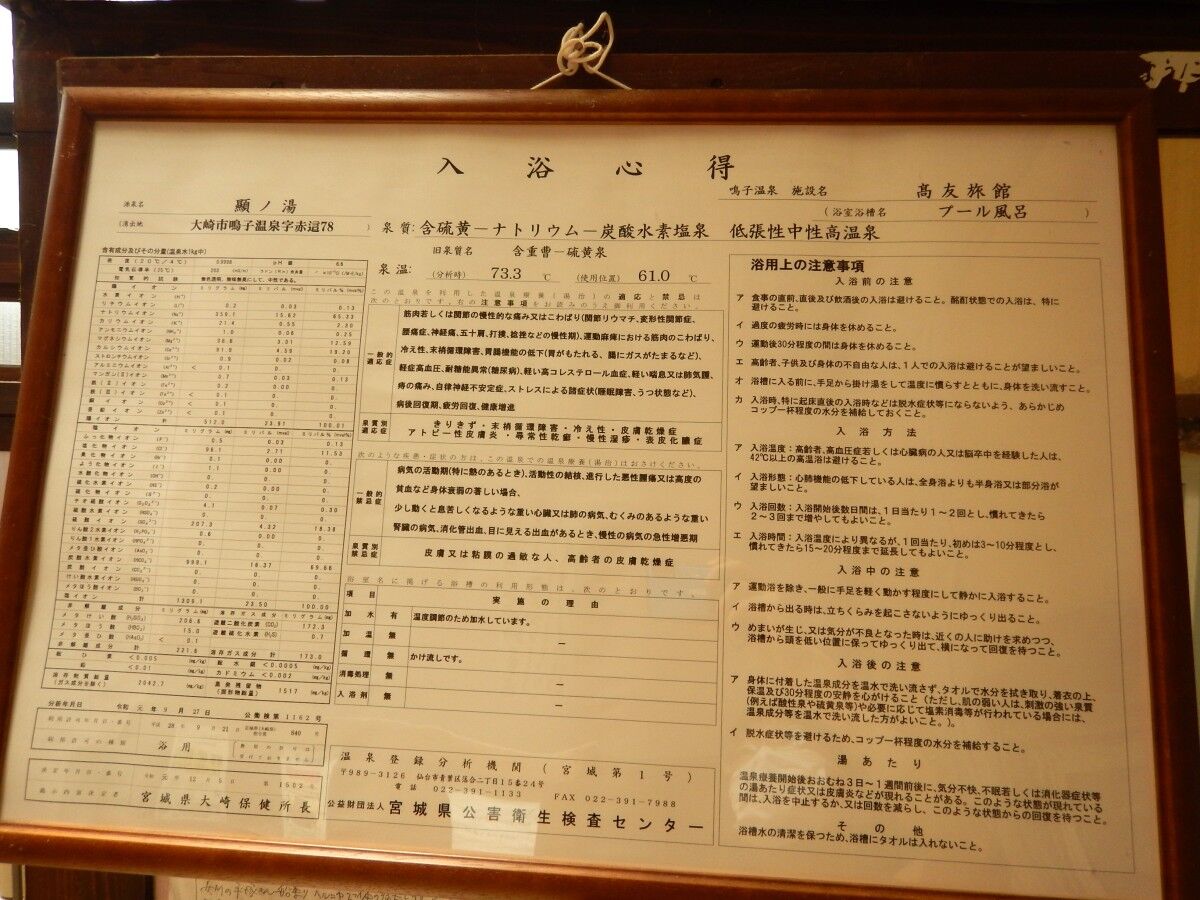 入浴心得
鳴子温泉 施設名 高友旅館
源泉名 顯ノ湯
(浴室浴槽名 プール風呂 )
(湧出地 大崎市鳴子温泉字赤這78 )
泉質:含硫黄－ナトリウム－炭酸水素塩泉 低張性中性高温泉
旧泉質名 含重曹－硫黄泉
泉温: (分析時) 73.3 ℃ (使用位置) 61.0 ℃
この温泉を利用した温泉療養(湯治)の適応と禁忌は
次のとおりです。右の注意事項をお読みのうえ御利用ください。
一般的適応症
筋肉若しくは関節の慢性的な痛み又はこわばり(関節リウマチ、変形性関節症、
腰痛症、神経痛、五十肩、打撲、捻挫などの慢性期)、運動麻痺における筋肉のこわばり、
冷え性、末梢循環障害、胃腸機能の低下(胃がもたれる、腸にガスがたまるなど)、
軽症高血圧、耐糖能異常(糖尿病)、軽い高コレステロール血症、軽い喘息又は肺気腫、
痔の痛み、自律神経不安定症、ストレスによる諸症状(睡眠障害、うつ状態など)、
病後回復期、疲労回復、健康増進
泉質別適応症
きりきず・末梢循環障害・冷え性・皮膚乾燥症
アトピー性皮膚炎・尋常性乾癬・慢性湿疹・表皮化膿症
次のような疾患・症状の方は、この温泉での温泉療養(湯治)はおさけください。
一般的禁忌症
病気の活動期(特に熱のあるとき)、活動性の結核、進行した悪性腫瘍又は高度の
貧血など身体衰弱の著しい場合、
少し動くと息苦しくなるような重い心臓又は肺の病気、むくみのあるような重い
腎臓の病気、消化管出血、目に見える出血があるとき、慢性の病気の急性増悪期
泉質別禁忌症
皮膚又は粘膜の過敏な人、高齢者の皮膚乾燥症
浴室名に掲げる浴槽の利用形態は、次のとおりです。
項目 実施の理由
加水 有 温度調節のため加水しています。
加温 無 －
循環 無 かけ流しです。
消毒処理 無 －
入浴剤 無 －
含有成分及びその分量(温泉水1kg中)
陽イオン ミリグラム(mg) ミリバル(mval) ミリバル%(mval%)
リチウムイオン 0.2 0.03 0.13
ナトリウムイオン 359.1 15.62 65.33
カリウムイオン 21.4 0.55 2.30
アンモニウムイオン 1.0 0.06 0.25
マグネシウムイオン 36.6 3.01 12.59
カルシウムイオン 91.9 4.59 19.20
陽イオン 計 512.0 23.91 100.01
陰イオン ミリグラム(mg) ミリバル(mval) ミリバル%(mval%)
ふっ化物イオン 0.5 0.03 0.13
塩化物イオン 96.1 2.71 11.53
硫酸イオン 207.3 4.32 18.38
陰イオン 計 1309.1 23.50 100.00
メタけい酸 206.6 遊離二酸化炭素 172.3
メタほう酸 15.0 遊離硫化水素 0.7
非解離成分 計 221.6 溶存ガス成分 計 173.0
総ひ素 <0.005 総水銀 <0.0005
鉛 <0.01 カドミウム <0.002
溶存物質総量(ガス成分を除く) 2042.7 蒸発残留物 1517
分析年月日 令和元年9月27日 公衛検第1162号
平成28年9月21日 640号
浴用
令和元年12月5日 第1502号
宮城県大崎保健所長
温泉登録分析機関(宮城第1号)
〒989-3126 仙台市青葉区落合二丁目15番24号
電話 022-391-1133 FAX 022-391-7988
公益財団法人 宮城県公害衛生検査センター
浴用上の注意事項
入浴前の注意
ア 食事の直前、直後及び飲酒後の入浴は避けること。酩酊状態での入浴は、特に
避けること。
イ 過度の疲労時には身体を休めること。
ウ 運動後30分程度の間は身体を休めること。
エ 高齢者、子供及び身体の不自由な人は、1人での入浴は避けることが望ましいこと。
オ 浴槽に入る前に、手足から掛け湯をして温度に慣らすとともに、身体を洗い流すこと。
カ 入浴時、特に起床直後の入浴時などは脱水症状等にならないよう、あらかじめ
コップ一杯程度の水分を補給しておくこと。
入浴方法
ア 入浴温度:高齢者、高血圧症若しくは心臓病の人又は脳卒中を経験した人は、
42℃以上の高温浴は避けること。
イ 入浴形態:心肺機能の低下している人は、全身浴よりも半身浴又は部分浴が
望ましいこと。
ウ 入浴回数:入浴開始後数日間は、1日当たり1～2回とし、慣れてきたら
2～3回まで増やしてもよいこと。
エ 入浴時間:入浴温度により異なるが、1回当たり、初めは3～10分程度とし、
慣れてきたら15～20分程度まで延長してもよいこと。
入浴中の注意
ア 運動浴を除き、一般に手足を軽く動かす程度にして静かに入浴すること。
イ 浴槽から出る時は、立ちくらみを起こさないようにゆっくり出ること。
ウ めまいが生じ、又は気分が不良となった時は、近くの人に助けを求めつつ、
浴槽から頭を低い位置に保ってゆっくり出て、横になって回復を待つこと。
入浴後の注意
ア 身体に付着した温泉成分を温水で洗い流さず、タオルで水分を拭き取り、着衣の上、
保温及び30分程度の安静を心がけること(ただし、肌の弱い人は、刺激の強い泉質
(例えば酸性泉や硫黄泉等)や必要に応じて塩素消毒等が行われている場合には、
温泉成分等を温水で洗い流した方がよいこと。)。
イ 脱水症状等を避けるため、コップ一杯程度の水分を補給すること。
湯あたり
温泉療養開始後おおむね3日～1週間前後に、気分不快、不眠若しくは消化器症状等
の湯あたり症状又は皮膚炎などが現れることがある。このような状態が現れている
間は、入浴を中止するか、又は回数を減らし、このような状態からの回復を待つこと。
その他
浴槽水の清潔を保つため、浴槽にタオルは入れないこと。